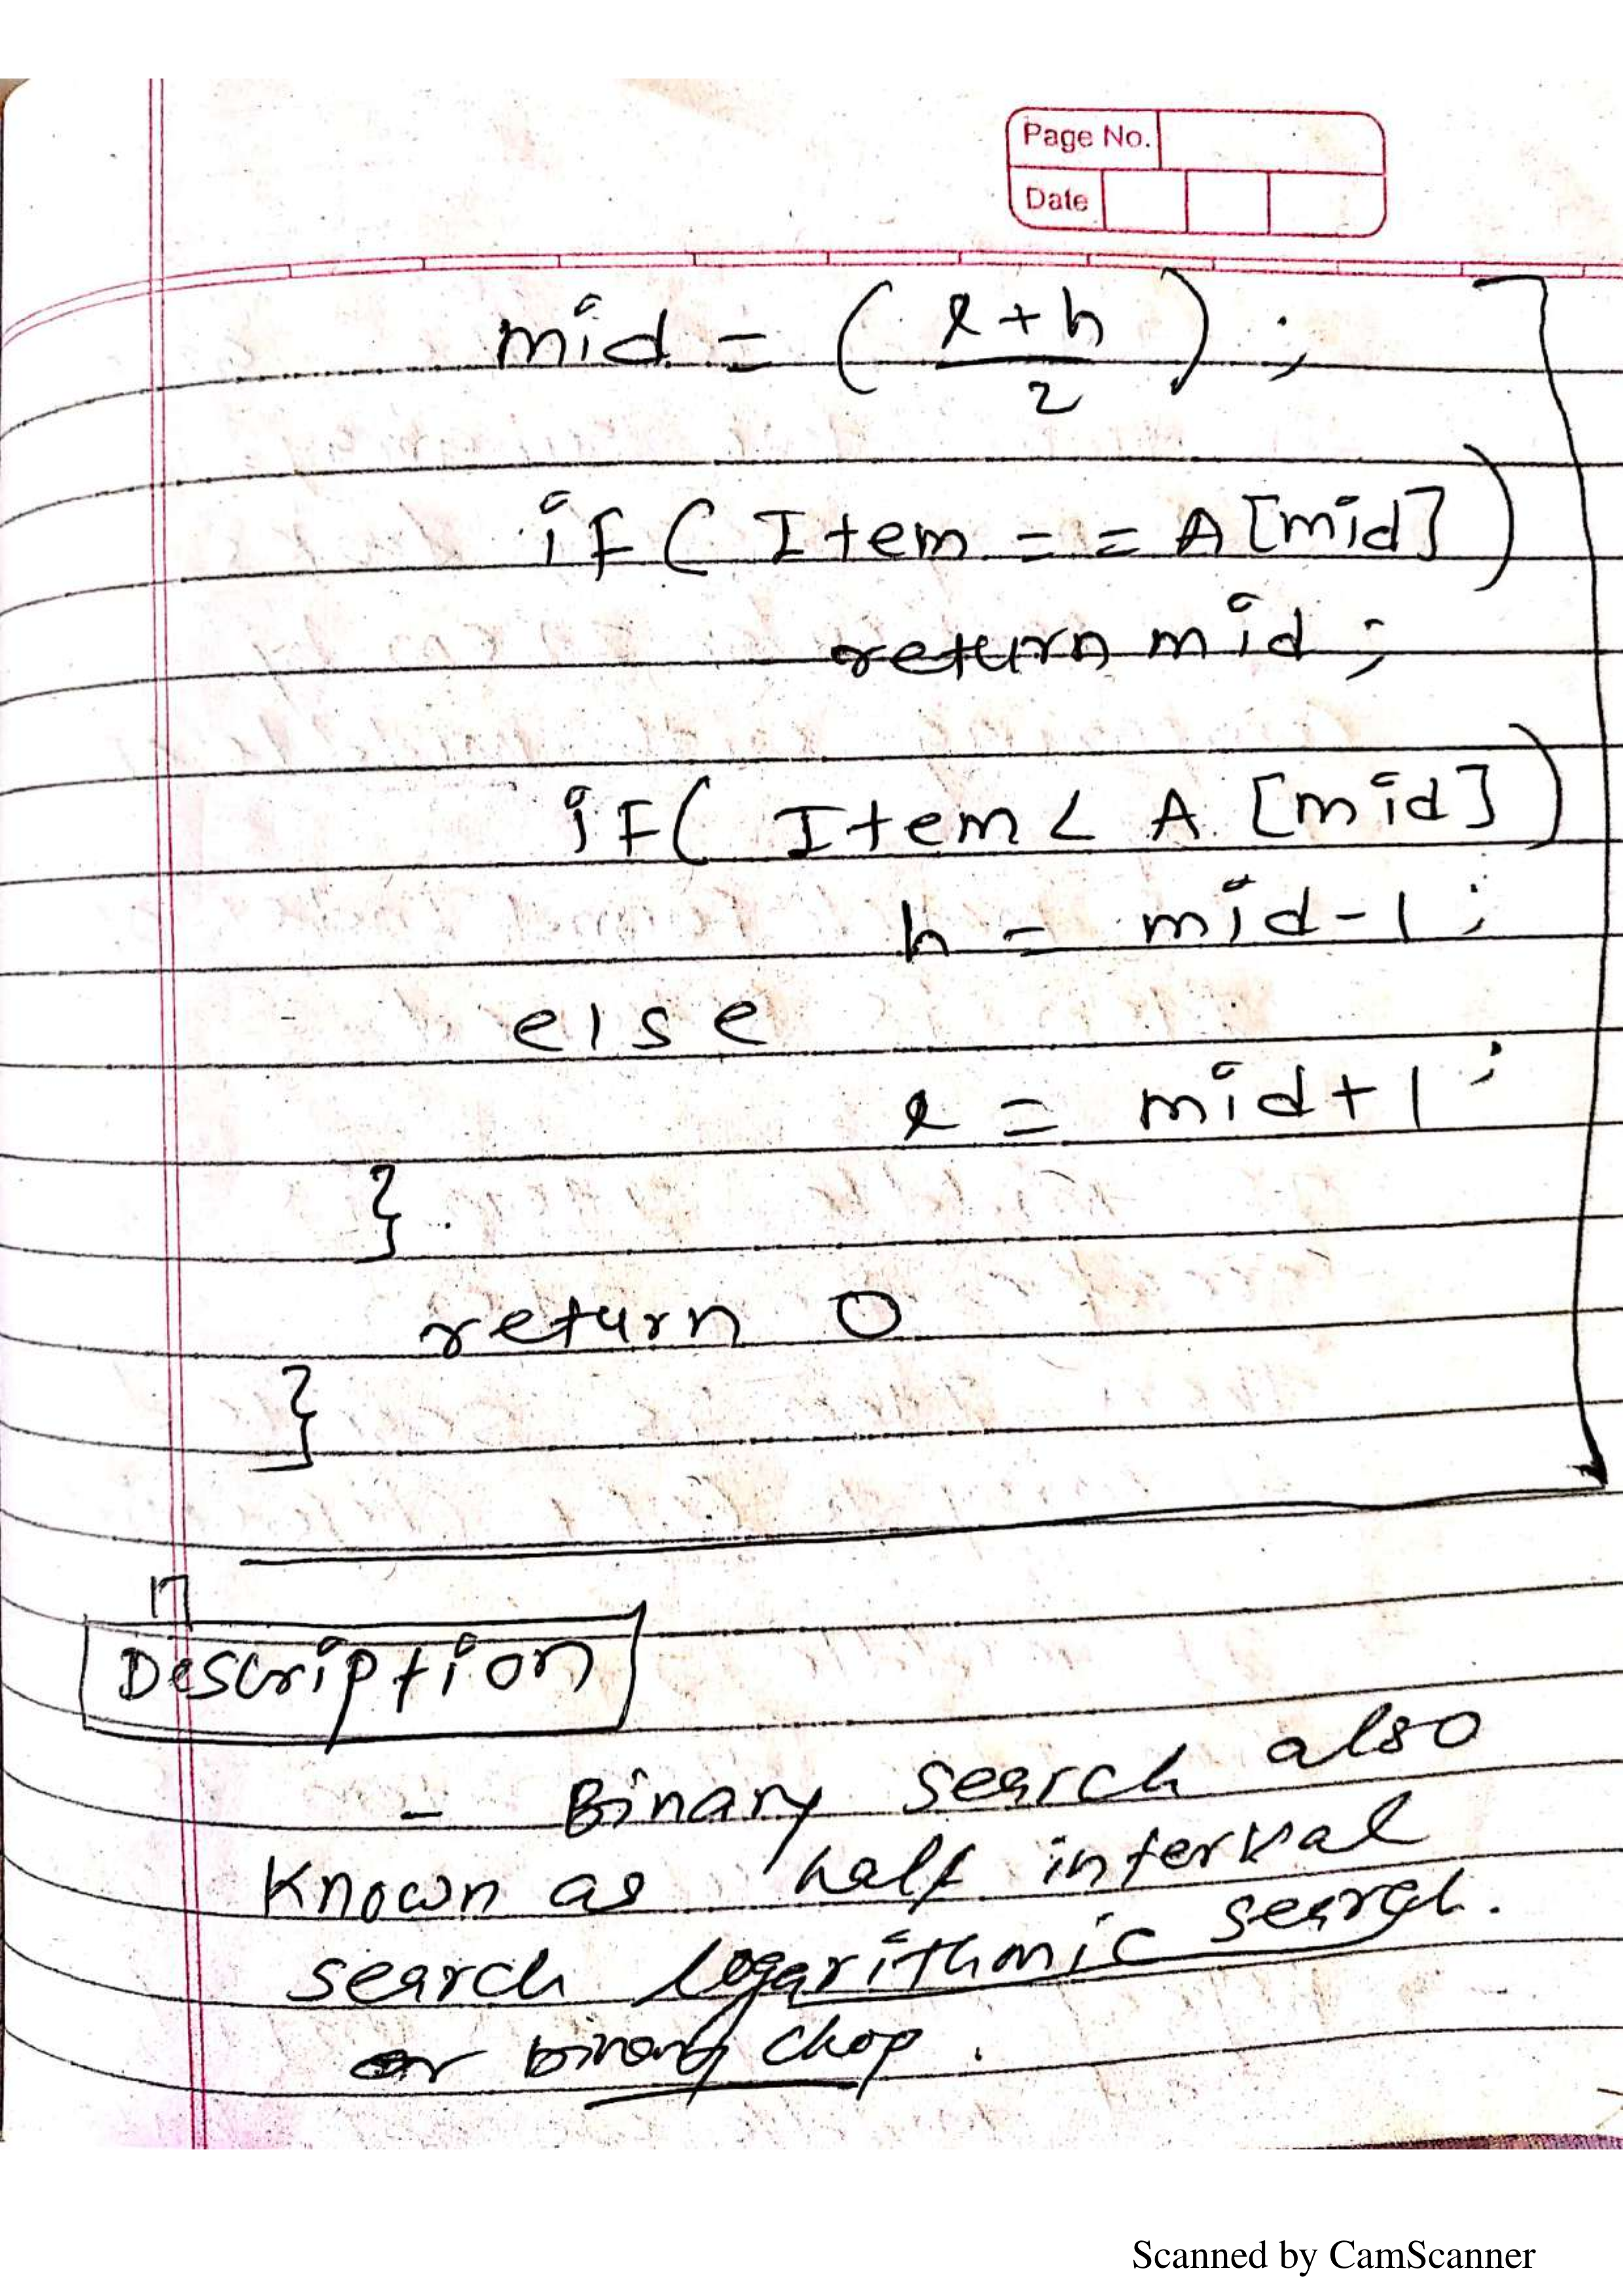 Page No.
Date
mid = (l+h/2);
if (Item == A[mid])
return mid;
if( Item < A [mid])
h = mid-1;
else
l = mid+1;
}
return 0
}
Description
- Binary search also
Known as half interval
search logarithmic search.
or binary chop.
Scanned by CamScanner